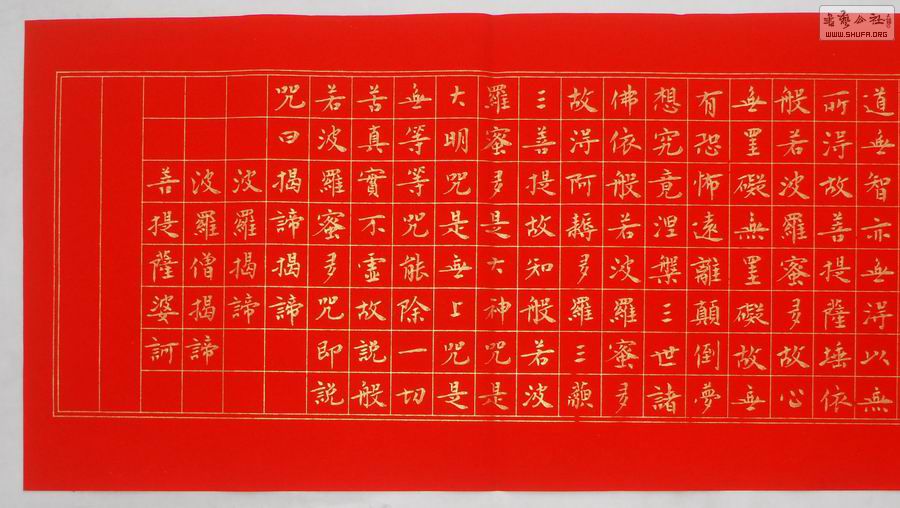 道無智亦無得以無
所得故菩提薩埵依
般若波羅蜜多故心
無罣礙無罣礙故無
有恐怖遠離顛倒夢
想究竟涅槃三世諸
佛依般若波羅蜜多
故得阿耨多羅三藐
三菩提故知般若波
羅蜜多是大神咒是
大明咒是無上咒是
無等等咒能除一切
苦真實不虛故說般
若波羅蜜多咒即說
咒曰揭諦揭諦
波羅揭諦
波羅僧揭諦
菩提薩婆訶
書藝公社
WWW.SHUFA.ORG